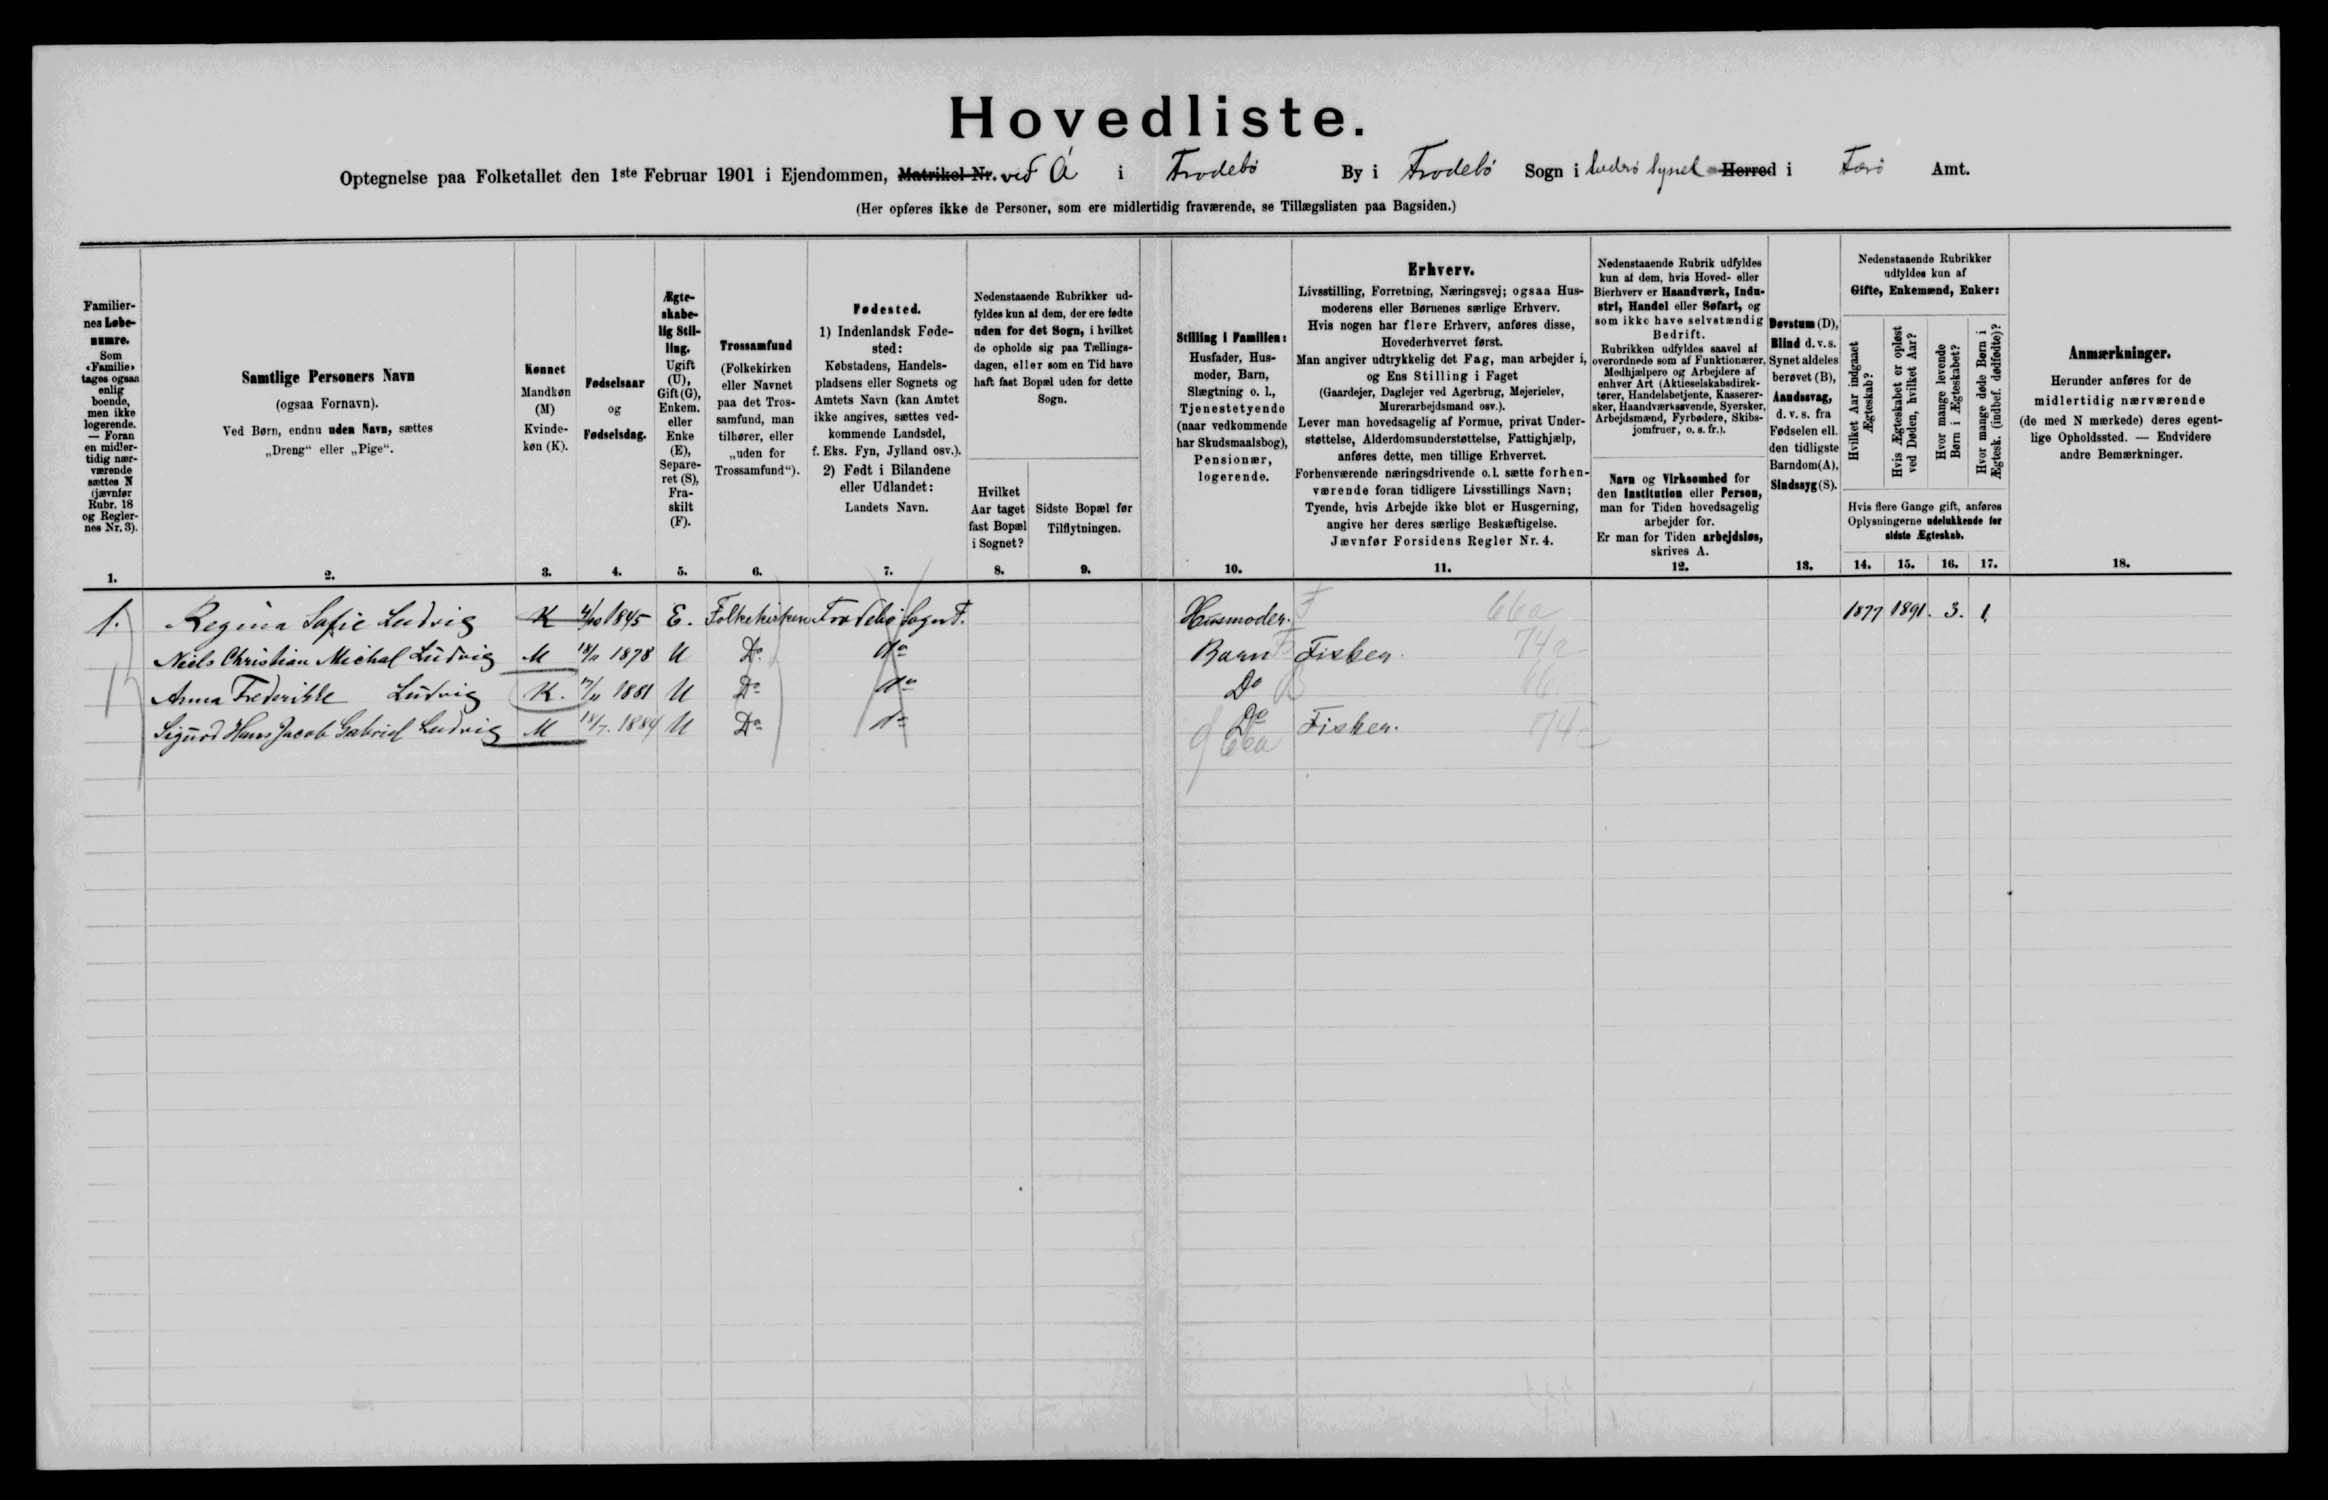 Hovedliste.
Optegnelse paa Folketallet den 1ste Februar 1901 i Ejendommen, Matrikel Nr. ved Á i Frodebø By i Frodebø Sogn i Suderø Sysel Herred i Færø Amt.
(Her opføres ikke de Personer, som ere midlertidig fraværende, se Tillægslisten paa Bagsiden.)
Familier-
nes Løbe-
numre.
Som
«Familie»
tages ogsaa
enlig
boende,
men ikke
logerende.
— Foran
en midler-
tidig nær-
værende
sættes N
(jævnfør
Rubr. 18
og Regler-
nes Nr. 3).
1.
Samtlige Personers Navn
(ogsaa Fornavn).
Ved Børn, endnu uden Navn, sættes
„Dreng“ eller „Pige“.
2.
Kønnet
Mandkøn
(M)
Kvinde-
køn (K).
3.
Fødselsaar
og
Fødselsdag.
4.
Ægte-
skabe-
lig Stil-
ling.
Ugift
(U),
Gift (G),
Enkem.
eller
Enke
(E),
Separe-
ret (S),
Fra-
skilt
(F).
5.
Trossamfund
(Folkekirken
eller Navnet
paa det Tros-
samfund, man
tilhører, eller
„uden for
Trossamfund“).
6.
Fødested.
1) Indenlandsk Føde-
sted:
Købstadens, Handels-
pladsens eller Sognets og
Amtets Navn (kan Amtet
ikke angives, sættes ved-
kommende Landsdel,
f. Eks. Fyn, Jylland osv.).
2) Født i Bilandene
eller Udlandet:
Landets Navn.
7.
Nedenstaaende Rubrikker ud-
fyldes kun af dem, der ere fødte
uden for det Sogn, i hvilket
de opholde sig paa Tællings-
dagen, eller som en Tid have
haft fast Bopæl uden for dette
Sogn.
Hvilket
Aar taget
fast Bopæl
i Sognet?
8.
Sidste Bopæl før
Tilflytningen.
9.
Stilling i Familien:
Husfader, Hus-
moder, Barn,
Slægtning o. l.,
Tjenestetyende
(naar vedkommende
har Skudsmaalsbog),
Pensionær,
logerende.
10.
Erhverv.
Livsstilling, Forretning, Næringsvej; ogsaa Hus-
moderens eller Børnenes særlige Erhverv.
Hvis nogen har flere Erhverv, anføres disse,
Hovederhvervet først.
Man angiver udtrykkelig det Fag, man arbejder i,
og Ens Stilling i Faget
(Gaardejer, Daglejer ved Agerbrug, Mejerielev,
Murerarbejdsmand osv.).
Lever man hovedsagelig af Formue, privat Under-
støttelse, Alderdomsunderstøttelse, Fattighjælp,
anføres dette, men tillige Erhvervet.
Forhenværende næringsdrivende o. l. sætte forhen-
værende foran tidligere Livsstillings Navn;
Tyende, hvis Arbejde ikke blot er Husgerning,
angive her deres særlige Beskæftigelse.
Jævnfør Forsidens Regler Nr. 4.
11.
Nedenstaaende Rubrik udfyldes
kun af dem, hvis Hoved- eller
Bierhverv er Haandværk, Indu-
stri, Handel eller Søfart, og
som ikke have selvstændig
Bedrift.
Rubrikken udfyldes saavel af
overordnede som af Funktionærer,
Medhjælpere og Arbejdere af
enhver Art (Aktieselskabsdirek-
tører, Handelsbetjente, Kasserer-
sker, Haandværkssvende, Syersker,
Arbejdsmænd, Fyrbødere, Skibs-
jomfruer, o. s. fr.).
Navn og Virksomhed for
den Institution eller Person,
man for Tiden hovedsagelig
arbejder for.
Er man for Tiden arbejdsløs,
skrives A.
12.
Døvstum (D),
Blind d. v. s.
Synet aldeles
berøvet (B),
Aandssvag,
d. v. s. fra
Fødselen ell.
den tidligste
Barndom (A),
Sindssyg (S).
13.
Nedenstaaende Rubrikker
udfyldes kun af
Gifte, Enkemænd, Enker:
Hvilket Aar indgaaet
Ægteskab?
Hvis Ægteskabet er opløst
ved Døden, hvilket Aar?
Hvor mange levende
Børn i Ægteskabet?
Hvor mange døde Børn i
Ægtesk. (indbef. dødfødte)?
Hvis flere Gange gift, anføres
Oplysningerne udelukkende for
sidste Ægteskab.
14. 15. 16. 17.
Anmærkninger.
Herunder anføres for de
midlertidig nærværende
(de med N mærkede) deres egent-
lige Opholdssted. — Endvidere
andre Bemærkninger.
18.
1. Regina Sofie Ludvig K 4/10 1845 E. Folkekirken Frodebø Sogn F. Husmoder. F 66a 1877 1891. 3. 1.
Niels Christian Michal Ludvig M 1878 U Do Do Barn Fisker. 74a
Anna Frederikke Ludvig K. 1881 U Do Do Do 66
Sigurd Hans Jacob Gabriel Ludvig M 18/7. 1884 U Do Do Do Fisker. 74a
66a